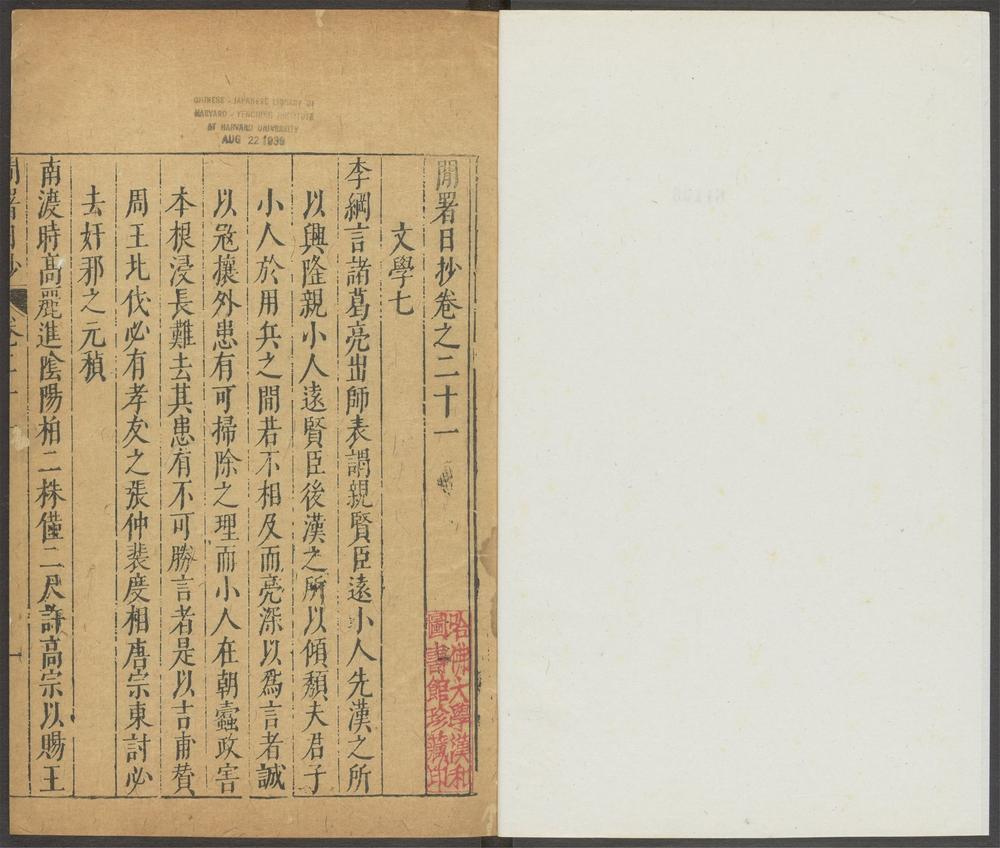 CHINESE - JAPANESE LIBRARY OF
HARVARD - YENCHING INSTITUTE
AT HARVARD UNIVERSITY
AUG 22 1939
閒署日抄卷之二十一
文學七
李綱言諸葛亮出師表謂親賢臣遠小人先漢之所
以興隆親小人遠賢臣後漢之所以傾頽夫君子
小人於用兵之間若不相及而亮深以爲言者誠
以冦攘外患有可掃除之理而小人在朝蠹政害
本根浸長難去其患有不可勝言者是以吉甫賛
周王北伐必有孝友之張仲裴度相唐宗東討必
去奸邪之元稹
南渡時髙麗進陰陽柏二株僅二尺許高宗以賜王
哈佛大學漢和
圖書館珍藏印